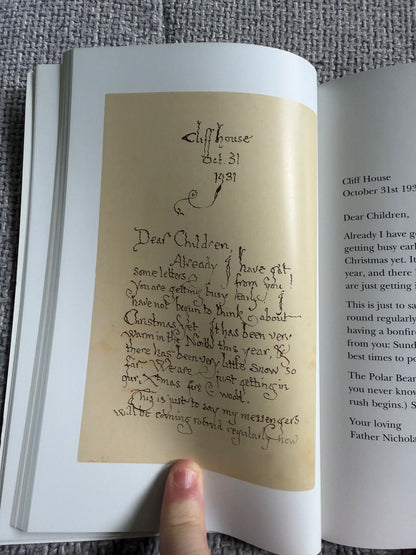 Cliff house
Oct. 31
1931
Dear Children,
Already I have got
some letters from you!
You are getting busy early. I
have not begun to think about
Christmas yet. It has been very
warm in the North this year, &
there has been very little snow so
far. We are just getting in
our Xmas fire wood.
This is just to say my messengers
will be coming round regularly now
Cliff House
October 31st 193
Dear Children,
Already I have go
getting busy earl
Christmas yet. It
year, and there
are just getting i
This is just to sa
round regularly
having a bonfire
from you: Sund
best times to po
The Polar Bea
you never know
rush begins.) S
Your loving
Father Nichola